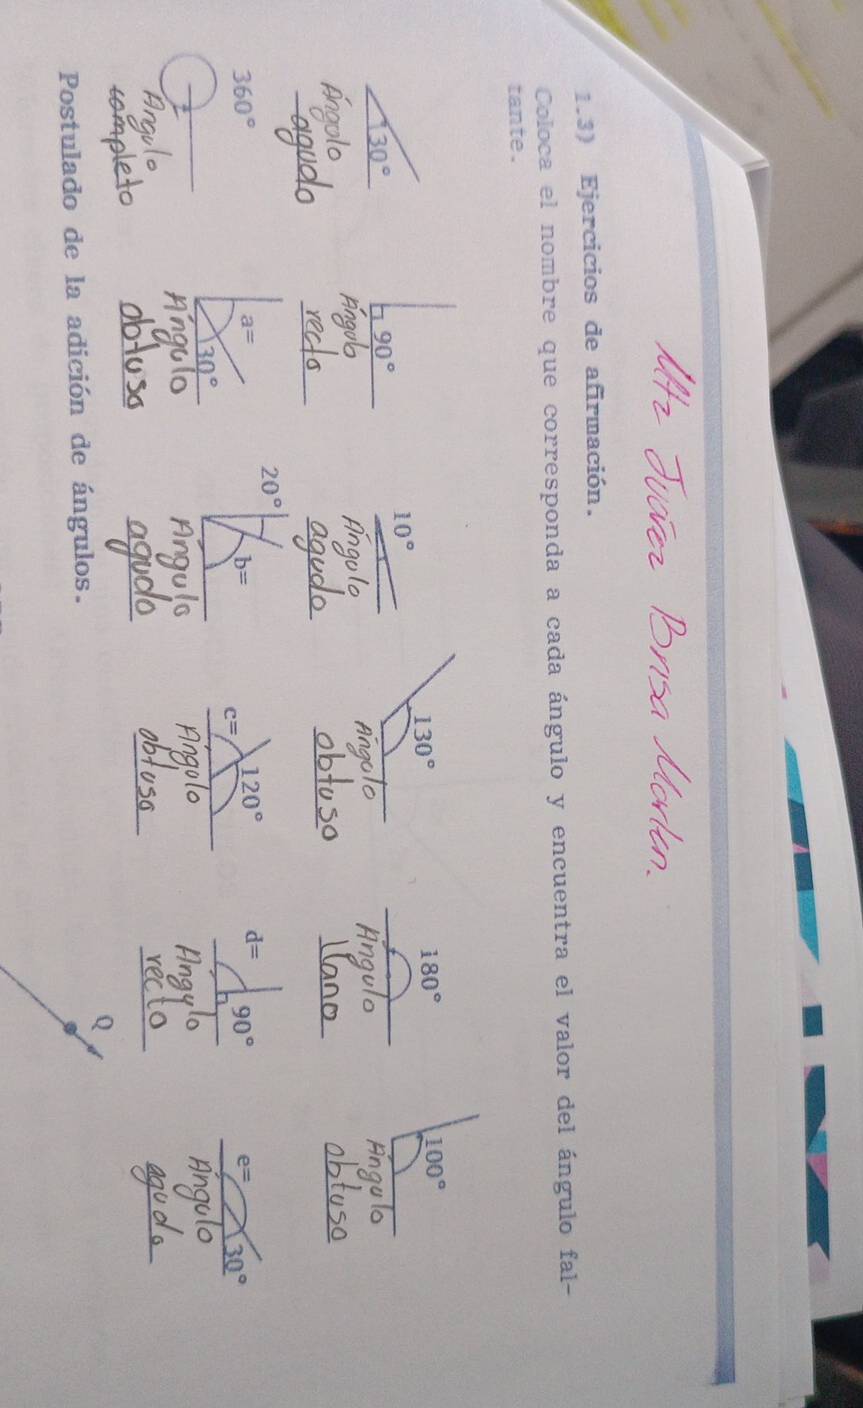 Mtz Juárez Brisa Marlen.
1.3) Ejercicios de afirmación.
Coloca el nombre que corresponda a cada ángulo y encuentra el valor del ángulo fal-
tante.
30° 90° 10° 130° 180° 100°
Ángulo Ángulo Ángulo Ángulo Ángulo Ángulo
agudo recto agudo obtuso llano obtuso
360° a= 30° 20° b= c= 120° d= 90° e= 30°
Ángulo Ángulo Ángulo Ángulo Ángulo Ángulo
completo obtuso agudo obtuso recto agudo
Postulado de la adición de ángulos.
Q